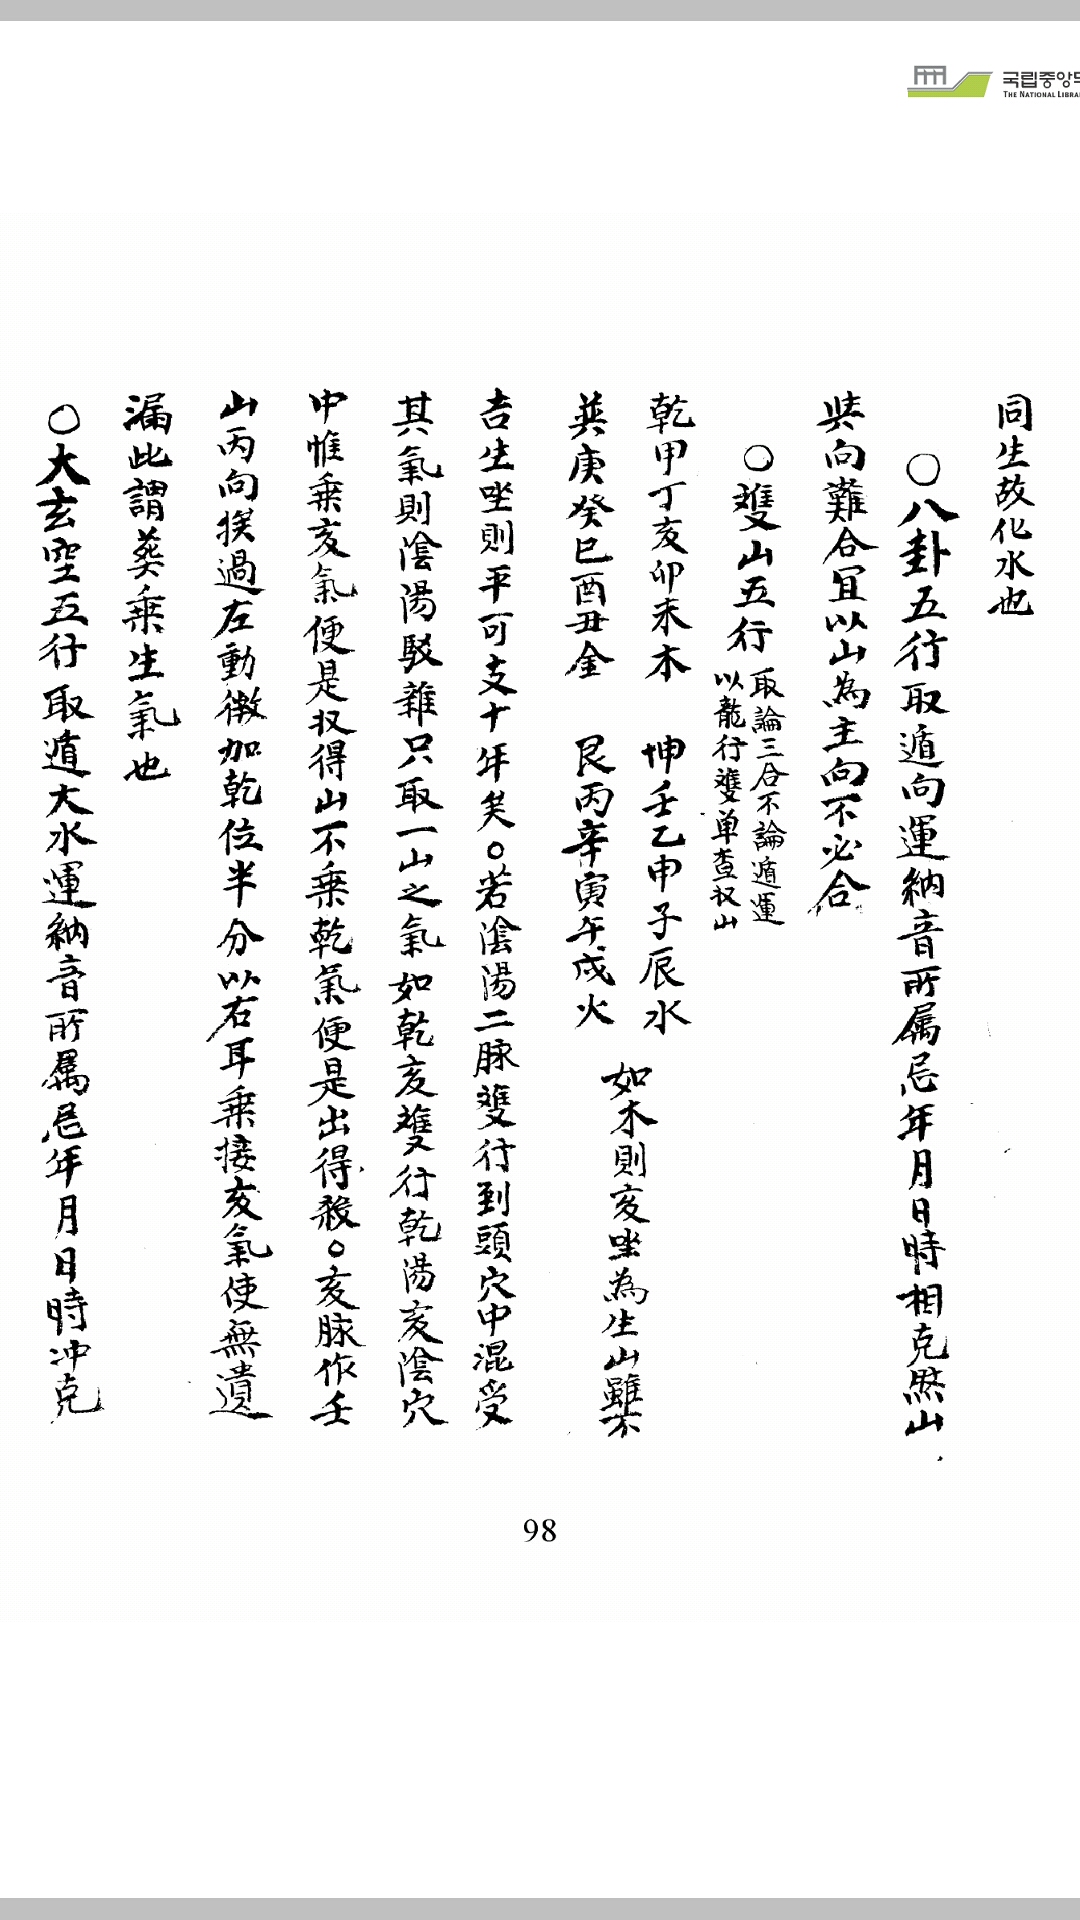 국립중앙도
THE NATIONAL LIBRA
同生故化水也
○八卦五行取遁向運納音所属忌年月日時相克然山
與向難合宜以山為主向不必合
○雙山五行 取論三合不論遁運
以龍行雙単查収山
乾甲丁亥卯未木 坤壬乙申子辰水
巽庚癸巳酉丑金 艮丙辛寅午戌火
如木則亥坐為生山雖不
吉生坐則平可支十年矣○若陰陽二脉雙行到頭穴中混受
其氣則陰陽駁雜只取一山之氣如乾亥雙行乾陽亥陰穴
中惟乗亥氣便是収得山不乗乾氣便是出得殺○亥脉作壬
山丙向挨過左動微加乾位半分以右耳乗接亥氣使無遺
漏此謂葬乗生氣也
○大玄空五行取遁大水運納音所属忌年月日時冲克
98